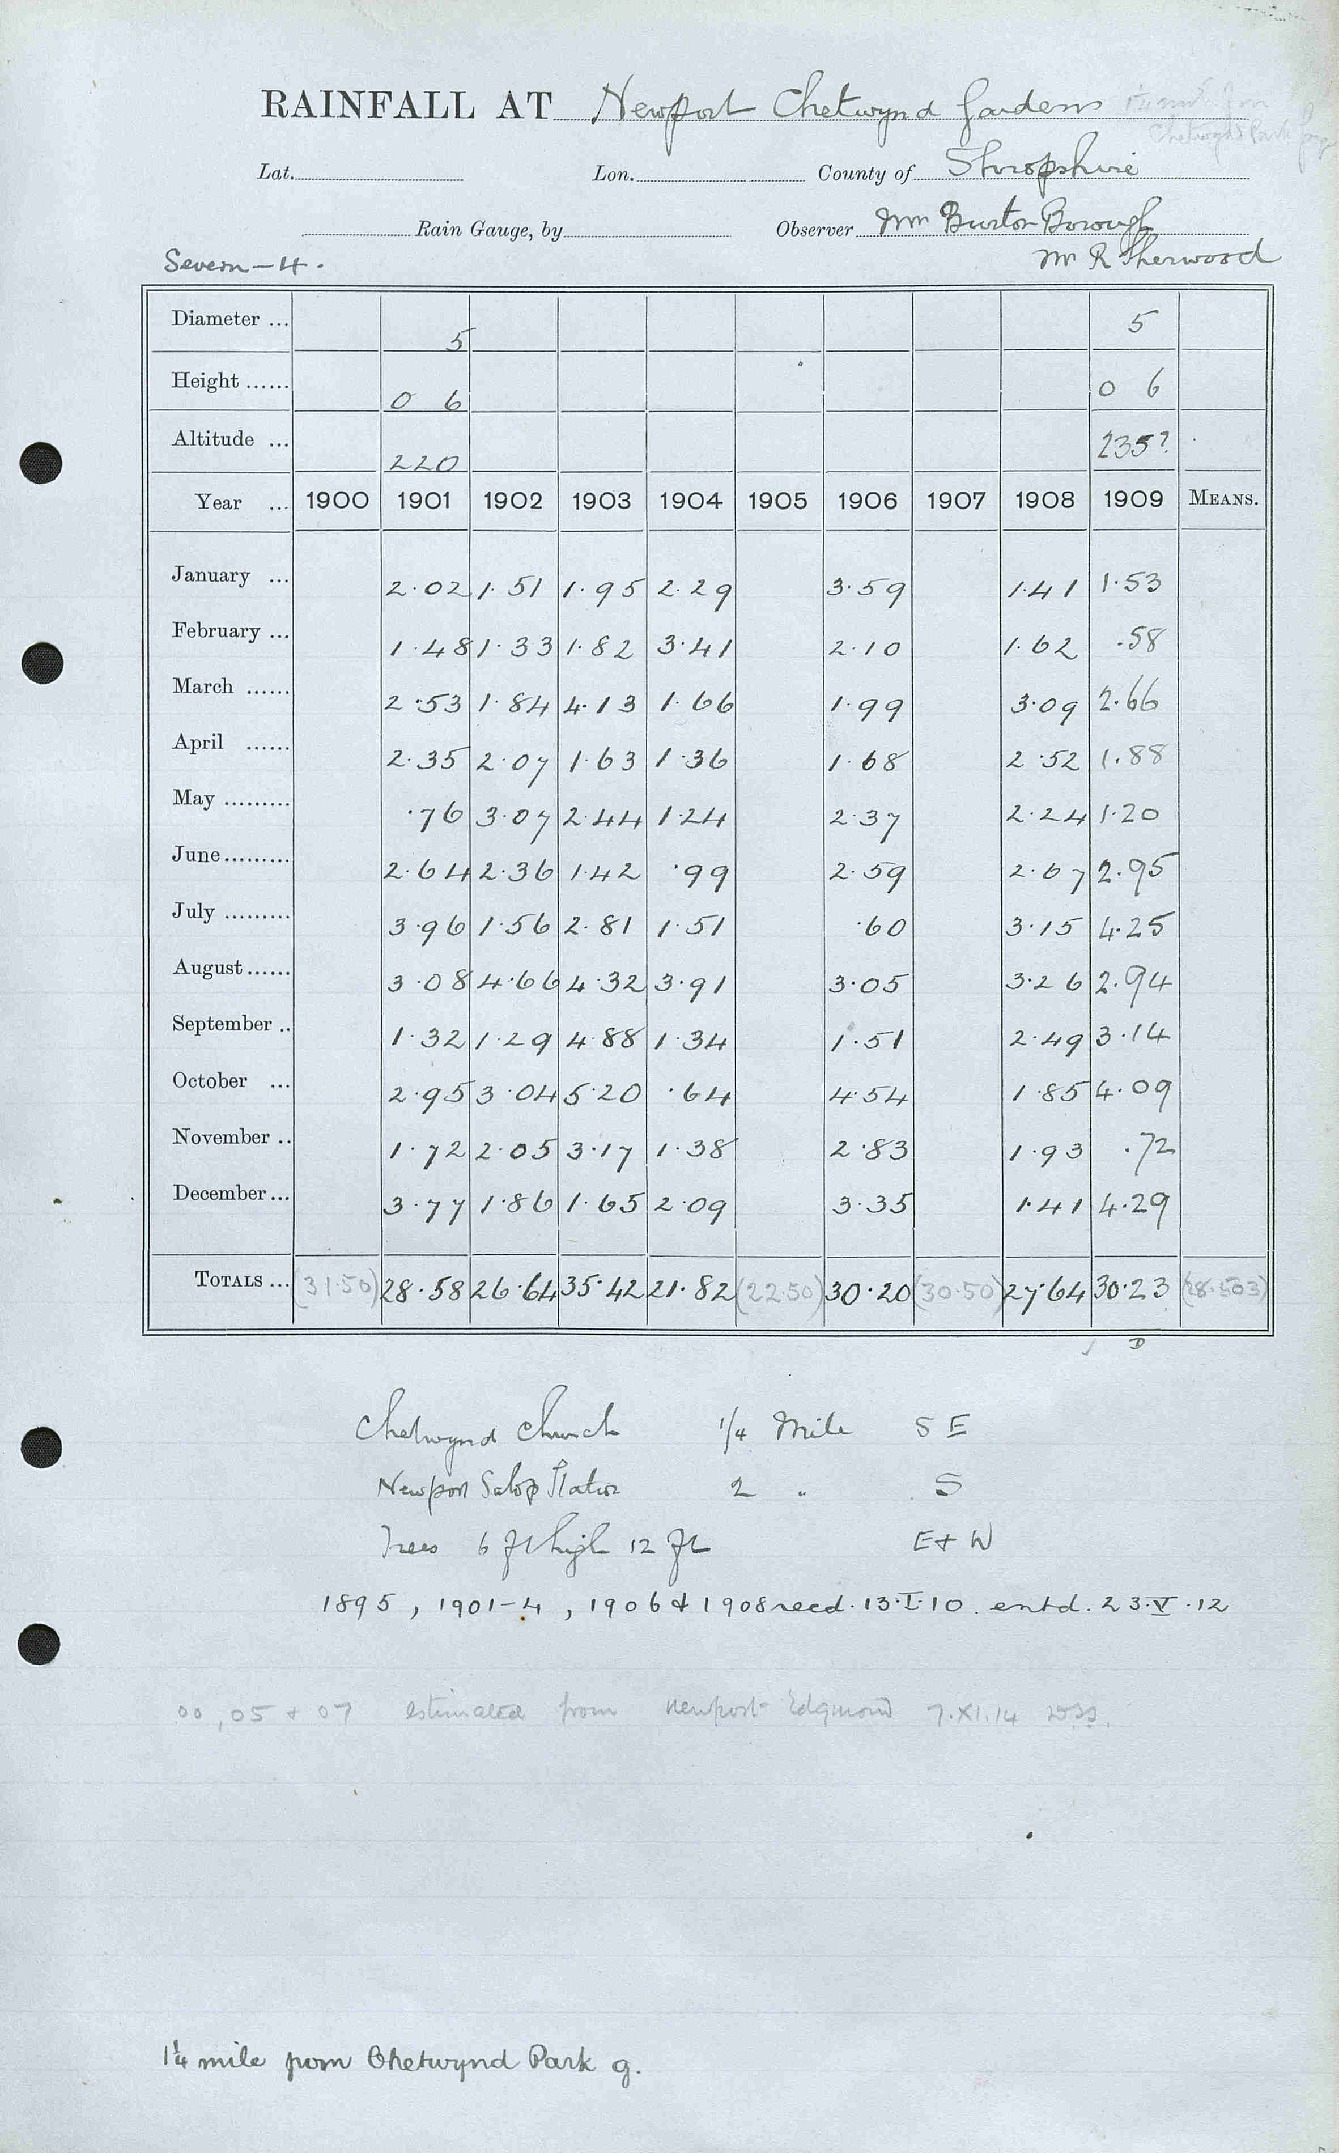 RAINFALL AT Newport Chetwynd Gardens 1¼ mile from
Chetwynd Park
Lat. Lon. County of Shropshire
Rain Gauge, by Observer Burton Borough
Severn-4. Mr R Sherwood
Diameter ... 5 5
Height ...... 0 6 0 6
Altitude ... 220 235?
Year ... 1900 1901 1902 1903 1904 1905 1906 1907 1908 1909 MEANS.
January ... 2.02 1.51 1.95 2.29 3.59 1.41 1.53
February ... 1.48 1.33 1.82 3.41 2.10 1.62 .58
March ...... 2.53 1.84 4.13 1.66 1.99 3.09 2.66
April ...... 2.35 2.07 1.63 1.36 1.68 2.52 1.88
May ......... .76 3.07 2.44 1.24 2.37 2.24 1.20
June ......... 2.64 2.36 1.42 .99 2.59 2.67 2.95
July ......... 3.96 1.56 2.81 1.51 .60 3.15 4.25
August ...... 3.08 4.66 4.32 3.91 3.05 3.26 2.94
September .. 1.32 1.29 4.88 1.34 1.51 2.49 3.14
October ... 2.95 3.04 5.20 .64 4.54 1.85 4.09
November .. 1.72 2.05 3.17 1.38 2.83 1.93 .72
December ... 3.77 1.86 1.65 2.09 3.35 1.41 4.29
TOTALS ... (31.50) 28.58 26.64 35.42 21.82 (22.50) 30.20 (30.50) 27.64 30.23 (28.503)
D
Chetwynd Church 1/4 Mile S E
Newport Salop Station 2 " S
Trees 6 ft high 12 ft E + W
1895, 1901-4, 1906 & 1908 recd. 13.I.10. entd. 23.V.12
00, 05 + 07 estimated from Newport Edgmond 7.XI.14
1¼ mile from Chetwynd Park g.